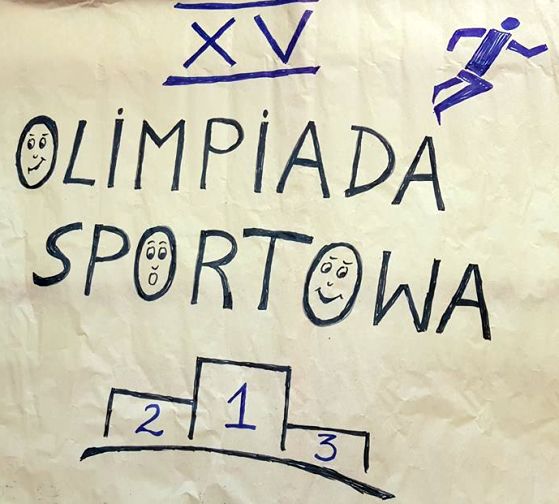 XV
OLiMPiADA
SPORTOWA
2 1 3